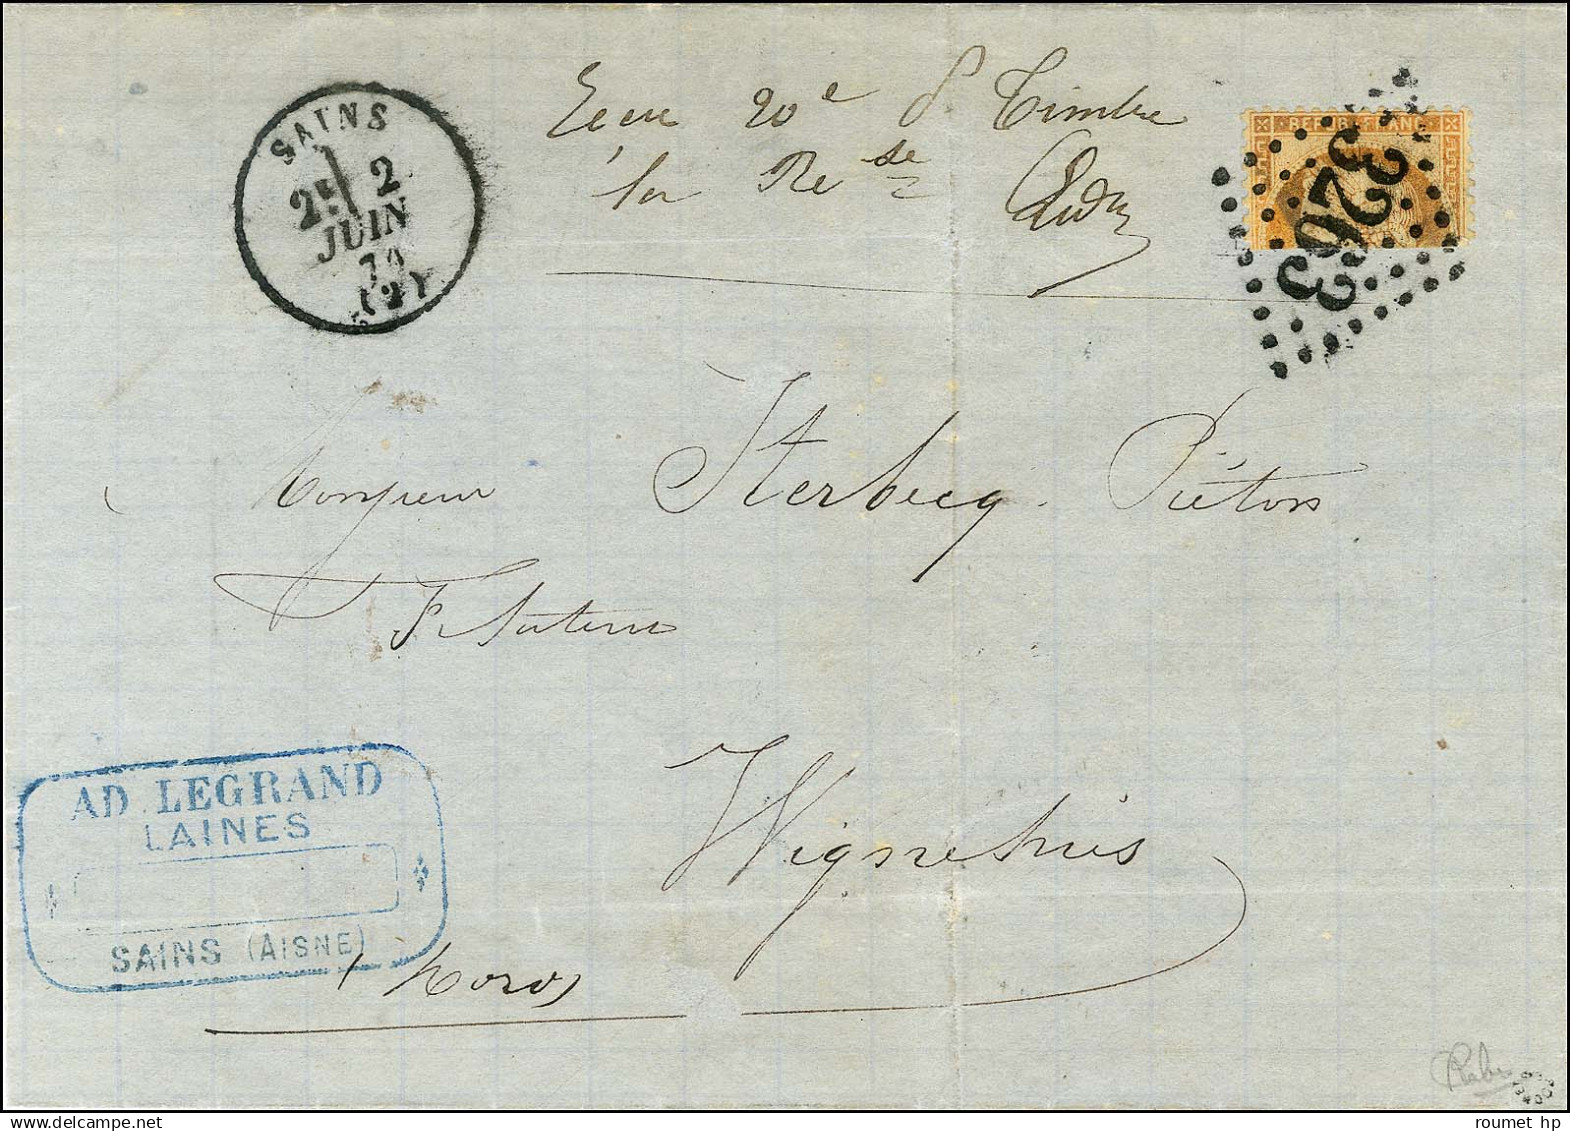 SAINS
2E 2
JUIN
74
(2)
Reçu 20 c de Timbre
la Rse
REPUB FRANC
3263
Monsieur Sterbecq Piéton
Filateur
Wignehies
(Nord)
AD. LEGRAND
LAINES
SAINS (AISNE)
roumet hp